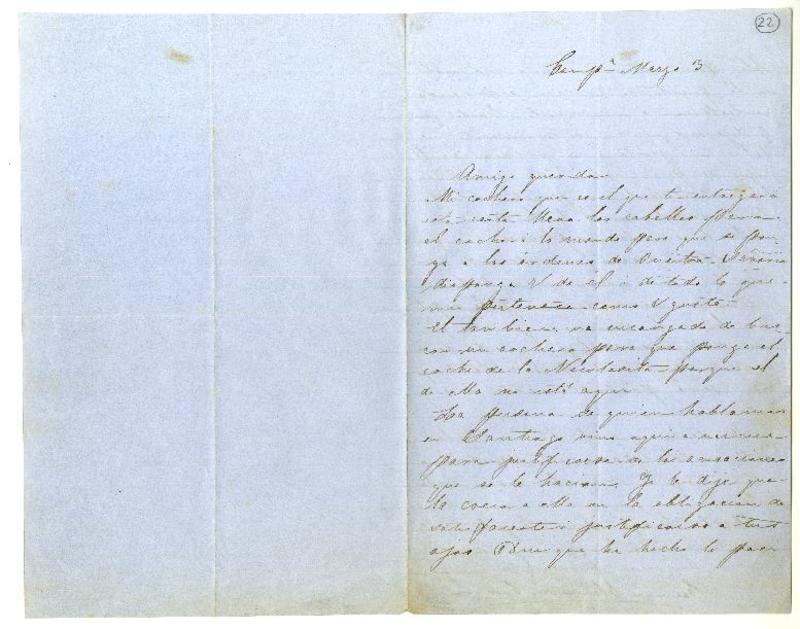 22
Marzo 3
Amigo querido
Mi cochero que es el que te entregará
esta lleva los caballos para
el coche i lo mando para que se pon-
ga a las órdenes de
disponga U de el i de todo lo que
me pertenece como U guste
El tambien va encargado de bus-
car un cochero para que ponga el
coche de la Nicolasita porque el
de ella no está aquí
La persona de quien hablamos
en Santiago vino aquí a
para justificarse de las acusaciones
que se le hacian. Yo le dije que
la creia a ella en la obligacion de
justificarse a tus
ojos que ha hecho lo